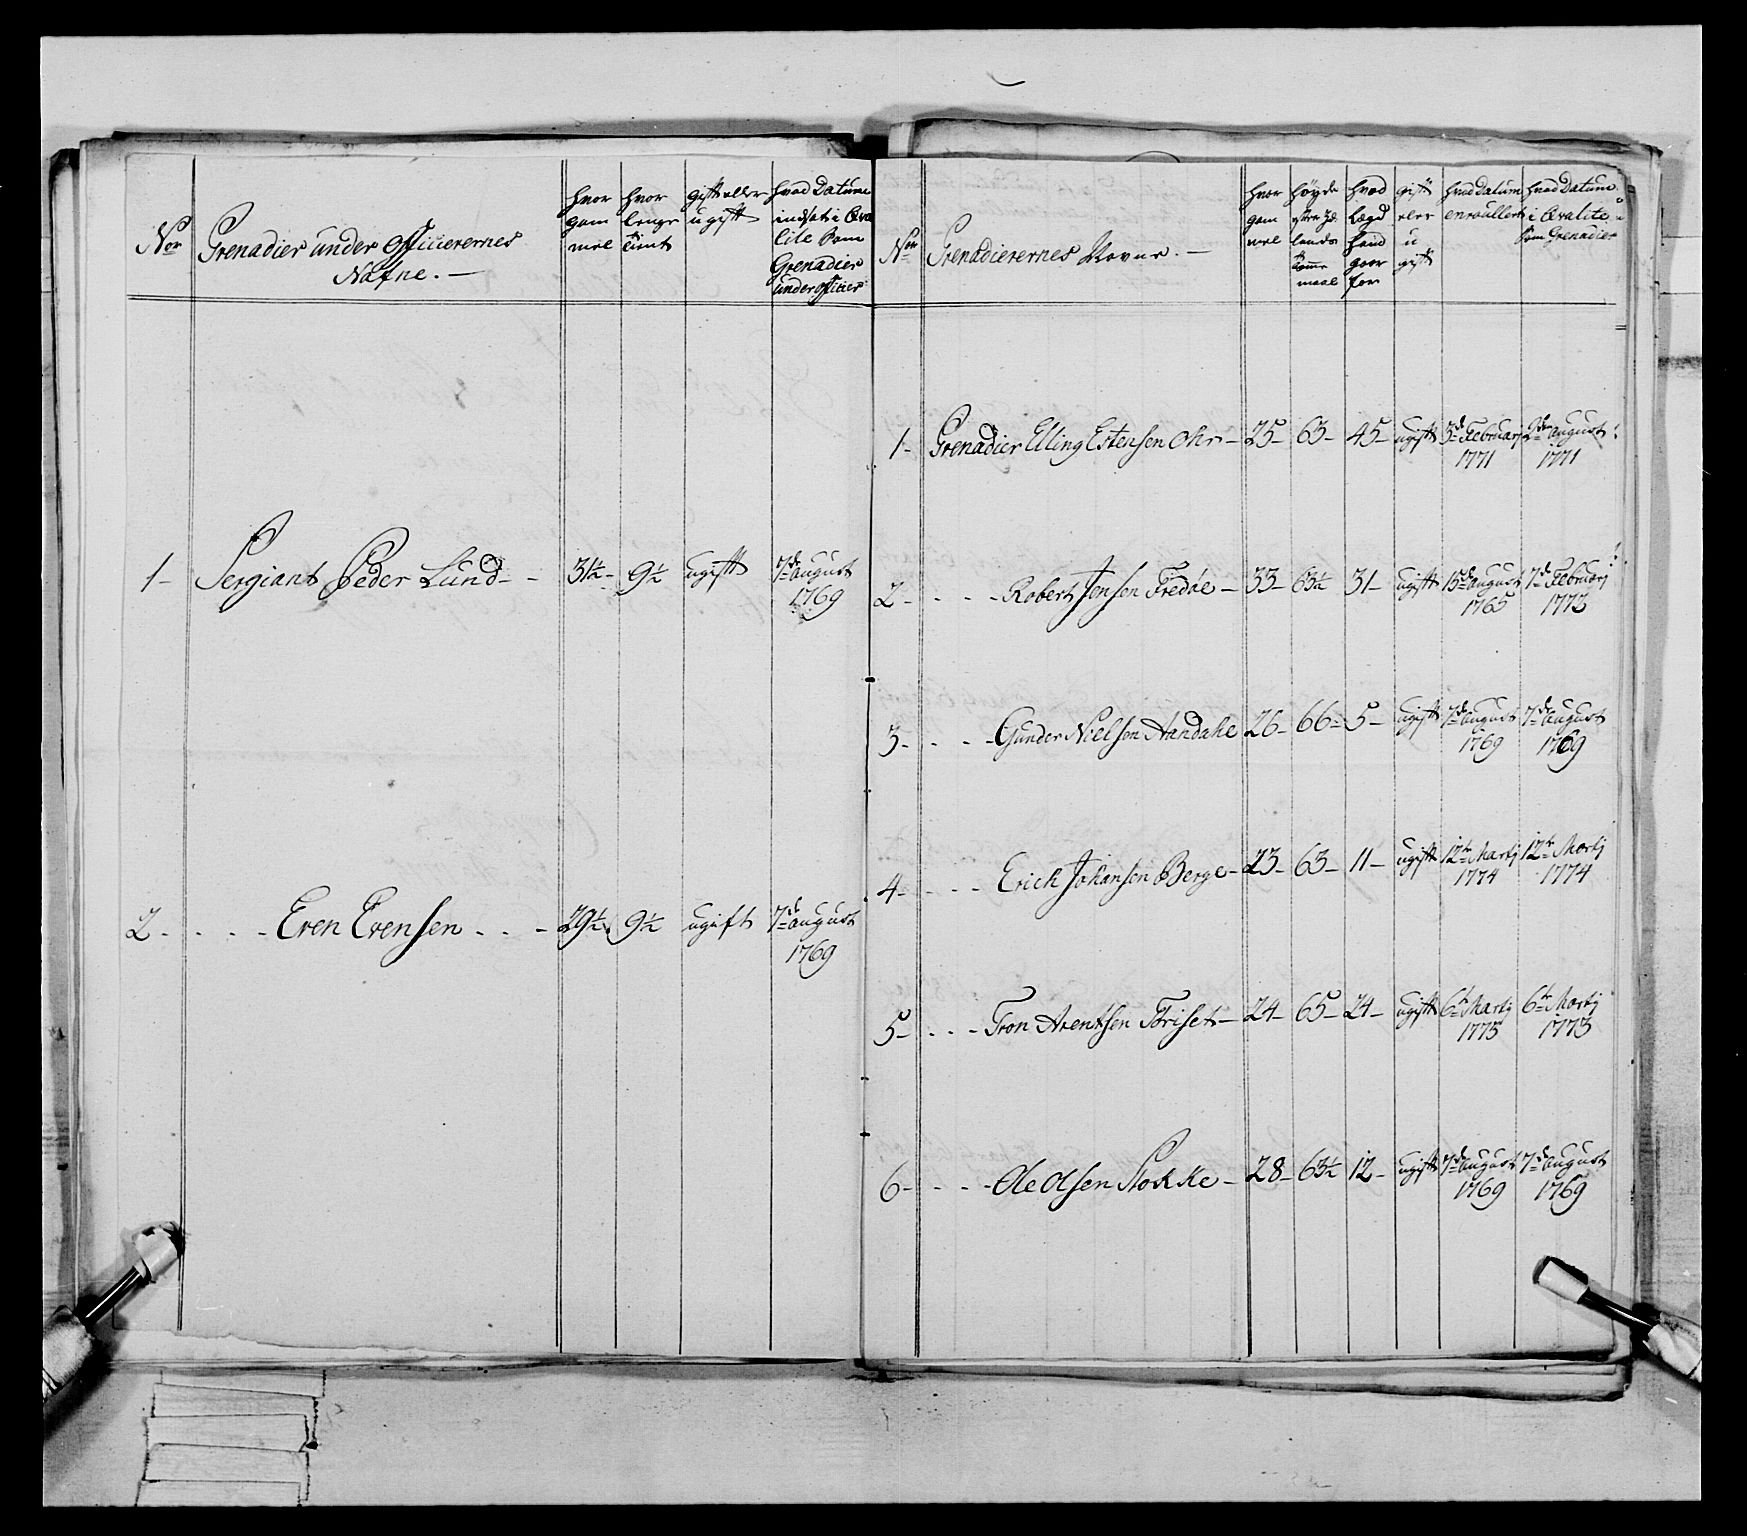 No Grenadier under Officierernes Nafne. — hvor gam mel hvor lenge tient gift eller ugift hvad Datum indsat i Qva lite som Grenadier underofficier
1 - Sergiant Peder Lund - - 31½ - 9½ ugift 7de august 1769
2 - - - - Even Evensen - - - 29½ 9½ ugift 7de august 1769
No Grenadierernes Navne. — hvor gam mel høyde maal hvad Lægd hand goer for gift eler u gift hvad Datum enroullert hvad Datum i Qvalite som Grenadier
1 - Grenadier Elling Estensen Ohr - 25 - 63 - 45 - ugift 3de Februarj 1771 2den august 1771
2 - - - - Robert Jensen Fredøe - 33 - 63½ 31 - ugift 15de august 1765 7de Februarj 1773
3 - - - - Gunder Nielsen Aandahl 26 - 66 - 5 - ugift 7de august 1769 7de august 1769
4 - - - - Erich Johansen Berge - 23 - 63 - 11 - ugift 12te Martij 1774 12te Martij 1774
5 - - - - Tron Arentsen Friset - 24 - 65 - 24 - ugift 6te Martij 1773 6te Martij 1773
6 - - - - Ole Olsen Stokke - 28 - 63½ 12 - ugift 7de august 1769 7de august 1769